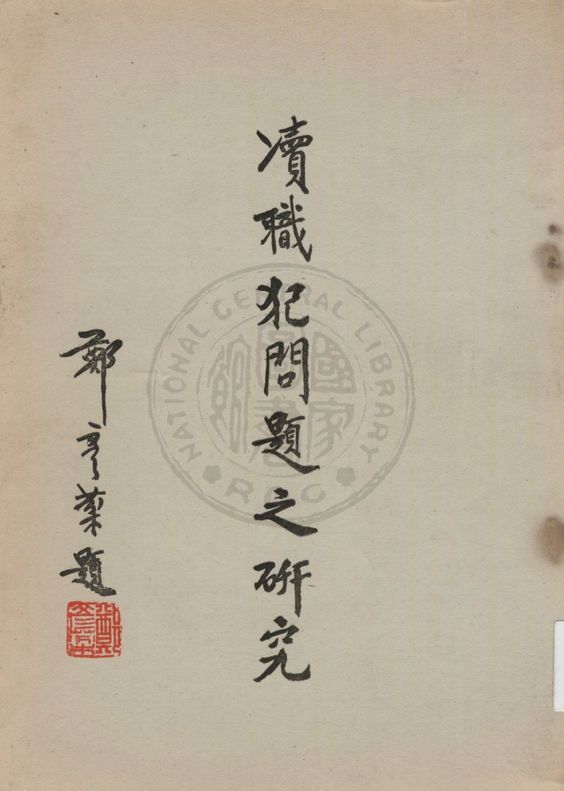 瀆職犯問題之研究
鄭彥棻題
NATIONAL CENTRAL LIBRARY
R.O.C
國家圖書館